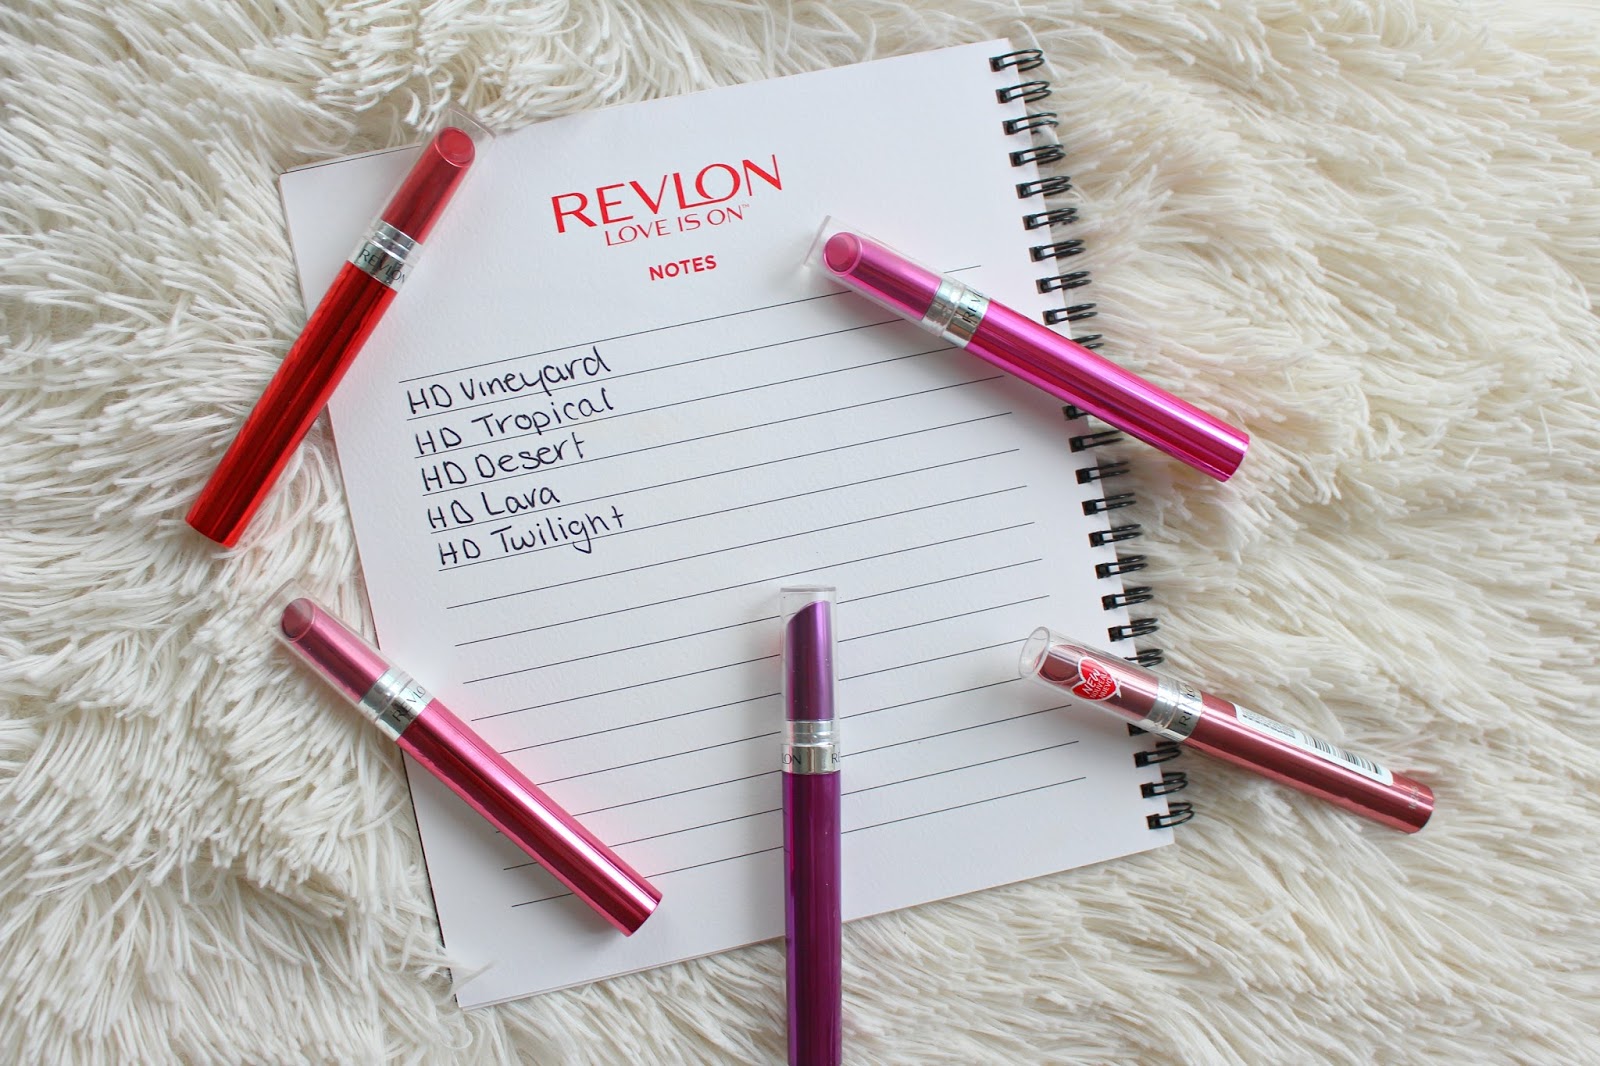 REVLON
LOVE IS ON™
NOTES
HD Vineyard
HD Tropical
HD Desert
HD Lava
HD Twilight
REVLON
REVL
REVLO
LON RE
NEW
REVLO